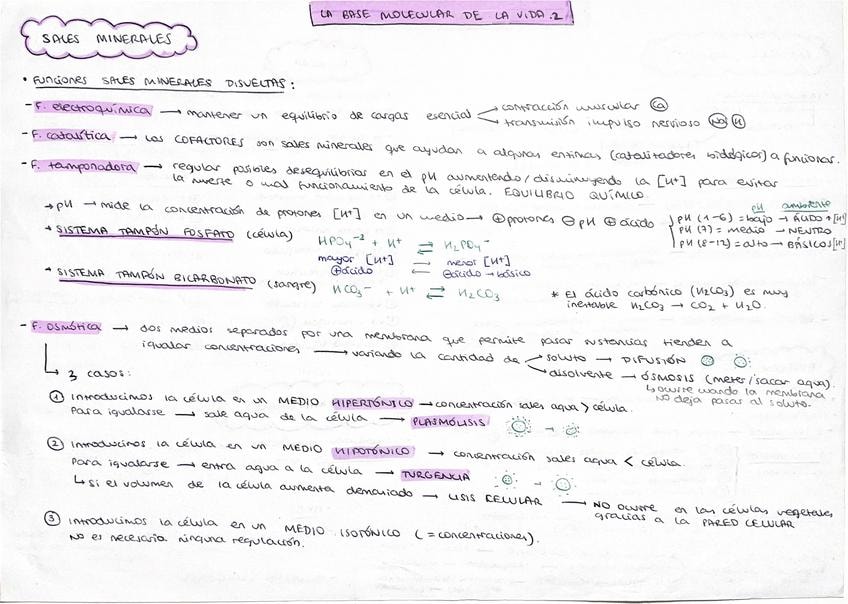 LA BASE MOLECULAR DE LA VIDA.2
SALES MINERALES
• FUNCIONES SALES MINERALES DISUELTAS:
- F. electroquímica → mantener un equilibrio de cargas esencial
contracción muscular Ca
transmisión impulso nervioso Na K
- F. catalítica → Los COFACTORES son sales minerales que ayudan a algunas enzimas (catalitadores biológicos) a funcionar.
- F. tamponadora → regular posibles desequilibrios en el pH aumentando/disminuyendo la [H⁺] para evitar
la muerte o mal funcionamiento de la célula. EQUILIBRIO QUÍMICO.
→ pH → mide la concentración de protones [H⁺] en un medio → ⊕ protones ⊖ pH ⊕ ácido
pH ambiente
pH (1-6) = bajo → ÁCIDO + [H⁺]
pH (7) = medio → NEUTRO
pH (8-12) = alto → BÁSICOS [H⁺]
* SISTEMA TAMPÓN FOSFATO (célula)
HPO₄²⁻ + H⁺ ⇄ H₂PO₄⁻
mayor [H⁺] → menor [H⁺]
⊕ácido ← ⊖ácido → básico
* SISTEMA TAMPÓN BICARBONATO (sangre) HCO₃⁻ + H⁺ ⇄ H₂CO₃
* El ácido carbónico (H₂CO₃) es muy
inestable H₂CO₃ → CO₂ + H₂O.
- F. osmótica → dos medios separados por una membrana que permite pasar sustancias tienden a
igualar concentraciones → variando la cantidad de
soluto → DIFUSIÓN
disolvente → ÓSMOSIS (meter/sacar agua).
↳ ocurre cuando la membrana
no deja pasar al soluto.
↳ 3 casos:
① Introducimos la célula en un MEDIO HIPERTÓNICO → concentración sales agua > célula.
Para igualarse → sale agua de la célula → PLASMÓLISIS
② Introducimos la célula en un MEDIO HIPOTÓNICO → concentración sales agua < célula.
Para igualarse → entra agua a la célula → TURGENCIA
↳ Si el volumen de la célula aumenta demasiado → LISIS CELULAR → NO ocurre en las células vegetales
gracias a la PARED CELULAR
③ Introducimos la célula en un MEDIO ISOTÓNICO (= concentraciones).
No es necesaria ninguna regulación.